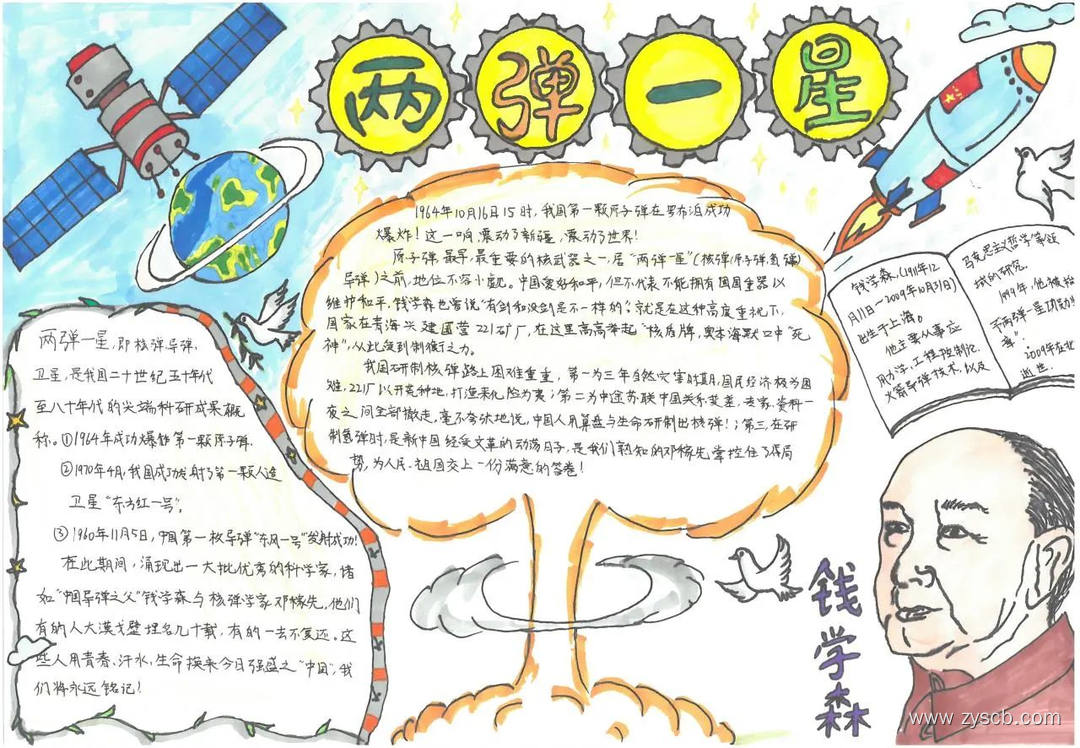 两弹一星
1964年10月16日15时,我国第一颗原子弹在罗布泊成功
爆炸!这一响,震动了新疆,震动了世界!
原子弹最早,最重要的核武器之一,居“两弹一星”(核弹(原子弹氢弹)
导弹)之前,地位不容小觑。中国爱好和平,但不代表不能拥有国国重器以
维护和平,钱学森也曾说“有剑和没剑是不一样的”。就是在这种高度重视下,
国家在青海兴建国营221矿厂,在这里高高举起“核盾牌,奥本海默口中“死
神”,从此受到制衡之力。
我国研制核弹路上困难重重,第一为三年自然灾害时期,国民经济极为困
难,221厂以开荒种地,打渔来化险为夷;第二为中途苏联中国关系恶差,专家,资料一
夜之间全部撤走,毫不夸张地说,中国人用算盘与生命研制出核弹!;第三,在研
制氢弹时,是新中国经受文革的动荡日子,是我们熟知的邓稼先掌控住了大局
势,为人民、祖国交上一份满意的答卷!
两弹一星,即核弹导弹,
卫星,是我国二十世纪五十年代
至八十年代的尖端科研成果概
称。①1964年成功爆炸第一颗原子弹.
②1970年4月,我国成功发射了第一颗人造
卫星“东方红一号”。
③1960年11月5日,中国第一枚导弹“东风一号”发射成功!
在此期间,涌现出一大批优秀的科学家,诸
如“中国导弹之父”钱学森与核弹学家邓稼先,他们
有的人大漠戈壁埋名几十载,有的一去不复返。这
些人用青春、汗水,生命换来今日强盛之“中国”,我
们将永远铭记!
钱学森,(1911年12
月11日~2009年10月31日)
出生于上海。
他主要从事应
用力学、工程控制论、
火箭导弹技术,以及
马克思主义哲学等领
域的研究.
1999年,他被授
予两弹一星功勋
章”.
2009年在北
逝世.
钱学森
www.zyscb.com